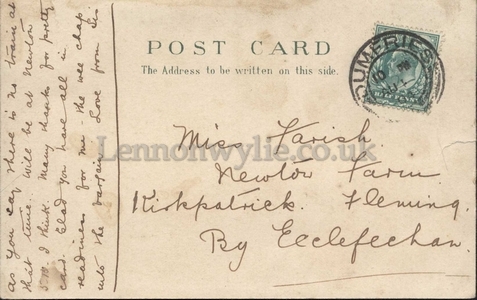 as you say there is no train at
that time. Will be at Newton
5.10 I think. Many thanks for pretty
card. Glad you have all in
readiness for me the wee chap
into the bargain. Love from Sis
POST CARD
The Address to be written on this side.
DUMFRIES
Lennonwylie.co.uk
Miss Parish.
Newton Farm.
Kirkpatrick. Fleming.
By Ecclefechan.